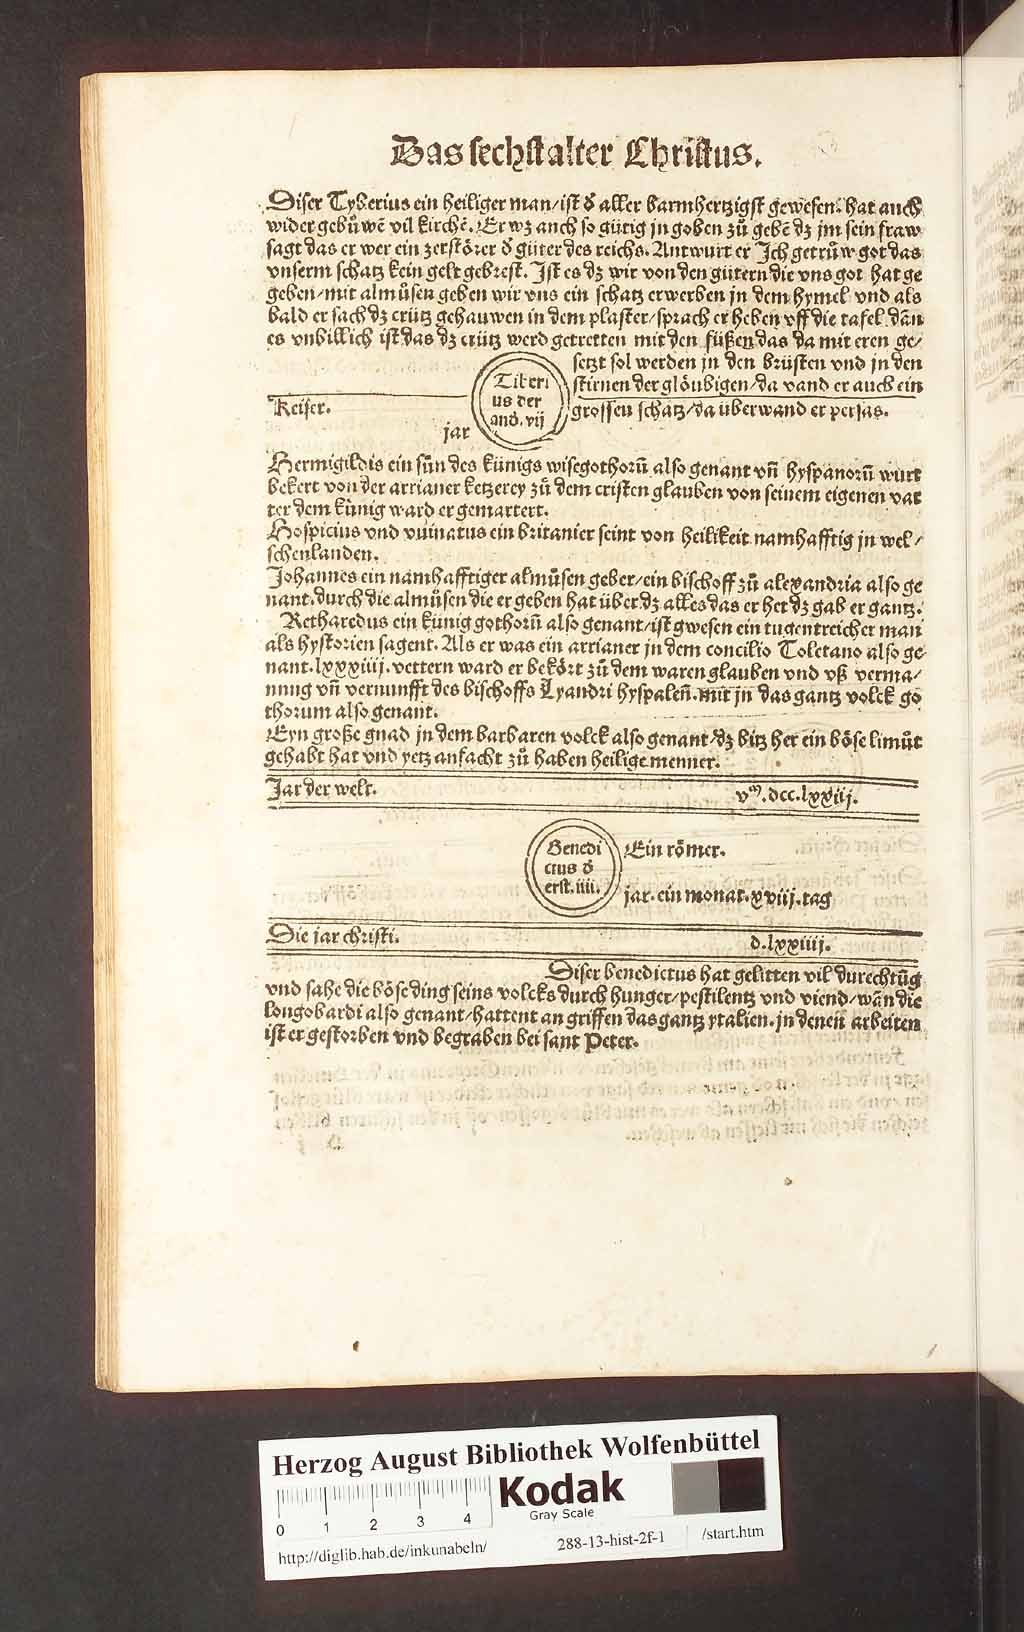 Das sechst alter Christus.
Diser Tyberius ein heiliger man/ist d̄ aller barmhertzigst gewesen. hat auch
wider gebůwē vil kirchē. Er wz auch so gütig jn goben zů gebē dz jm sein fraw
sagt das er wer ein zerstörer d̄ güter des reichs. Antwurt er Ich getrůw got das
vnserm schatz kein gelt gebrest. Ist es dz wir von den gütern die vns got hat ge
geben/mit almůsen geben wir vns ein schatz erwerben jn dem hymel vnd als
bald er sach dz crütz gehauwen in dem plaster/sprach er heben vff die tafel dān
es vnbillich ist das dz crütz werd getretten mit den füßen das da mit eren ge/
setzt sol werden jn den brüsten vnd jn den
stirnen der glöubigen/da vand er auch ein
grossen schatz/da überwand er persas.
Keiser.
Tiberi
us der
and. vij
jar
Hermigildis ein sůn des künigs wisegothorū also genant vn̄ hyspanorū wurt
bekert von der arrianer ketzerey zů dem cristen glauben von seinem eigenen vat
ter dem künig ward er gemartert.
Hospicius vnd vuinatus ein britanier seint von heilikeit namhafftig jn wel/
schenlanden.
Johannes ein namhafftiger almůsen geber/ein bischoff zů alexandria also ge
nant. durch die almůsen die er geben hat über dz alles das er het dz gab er gantz.
Retharedus ein künig gothorū also genant/ist gwesen ein tugentreicher man
als hystorien sagent. Als er was ein arrianer jn dem concilio Toletano also ge
nant. lxxxiiij. vettern ward er bekört zů dem waren glauben vnd vß verma/
nung vn̄ vernunfft des bischoffs Lyandri hyspaleñ. mit jn das gantz volck go
thorum also genant.
Eyn große gnad jn dem barbaren volck also genant/dz bitz her ein böse limůt
gehabt hat vnd yetz anfacht zů haben heilige menner.
Jar der welt. vᵐ. dcc. lxxiij.
Benedi
ctus d̄
erst. iiii.
Ein römer.
jar. ein monat. xviij. tag
Die jar christi. d. lxxiiij.
Diser benedictus hat gelitten vil durechtūg
vnd sahe die böse ding seins volcks durch hunger/pestilentz vnd viend/wān die
longobardi also genant/hattent an griffen das gantz ytalien. jn denen arbeiten
ist er gestorben vnd begraben bei sant Peter.
Herzog August Bibliothek Wolfenbüttel
0 1 2 3 4
Kodak
Gray Scale
http://diglib.hab.de/inkunabeln/ 288-13-hist-2f-1 /start.htm